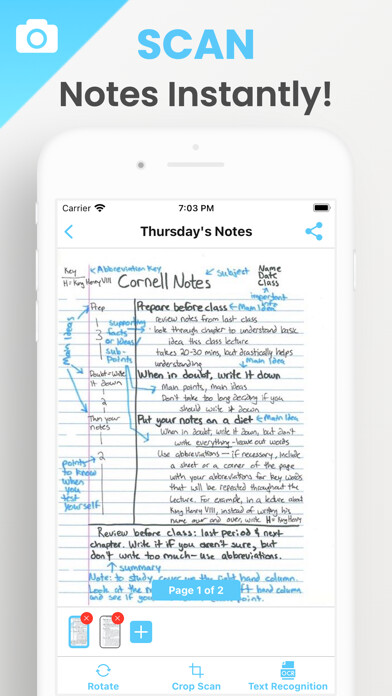 SCAN
Notes Instantly!
Carrier 7:03 PM
Thursday's Notes
Key
H = King Henry VIII
Abbreviation Key
Cornell Notes
subject
Name
Date
Class
important
info
Main Ideas
Prep
1
2
3
supporting
facts
or ideas/
sub-
points
Doubt = write
it down
1
2
Thin your
notes
1
2
points
to know
when
you
test
yourself
Prepare before class
Main Idea
review notes from last class
look through chapter to understand basic
idea this class lecture
takes 20-30 mins, but drastically helps
understanding
When in doubt, write it down
Main points, main ideas
Don't take too long deciding if you
should write it down
Put your notes on a diet
Main Idea
When in doubt, write it down, but don't
write everything - leave out words
Use abbreviations - if necessary, include
a sheet or a corner of the page
with your abbreviations for key words
that will be repeated throughout the
lecture. For example, in a lecture about
King Henry VIII, instead of writing his
name over and over, write H = King Henry
Review before class: last period & next
chapter. Write it if you aren't sure, but
don't write too much - use abbreviations.
summary
Note: to study, cover up the right hand column.
Look at the
left hand column
and see if you
point.
Page 1 of 2
Rotate
Crop Scan
OCR
Text Recognition